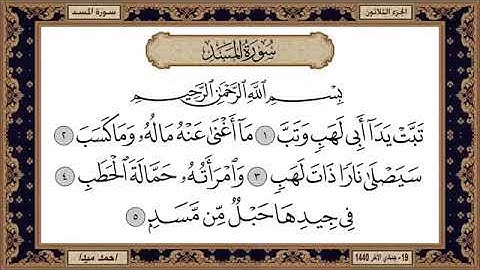 سورة المسد
الجزء الثلاثون
سُورَةُ المَسَدِ
بِسْمِ ٱللَّهِ ٱلرَّحْمَٰنِ ٱلرَّحِيمِ
تَبَّتْ يَدَآ أَبِى لَهَبٍ وَتَبَّ ١ مَآ أَغْنَىٰ عَنْهُ مَالُهُۥ وَمَا كَسَبَ ٢
سَيَصْلَىٰ نَارًا ذَاتَ لَهَبٍ ٣ وَٱمْرَأَتُهُۥ حَمَّالَةَ ٱلْحَطَبِ ٤
فِى جِيدِهَا حَبْلٌ مِّن مَّسَدٍۭ ٥
احمد ميدا
19- جمادي الآخر 1440